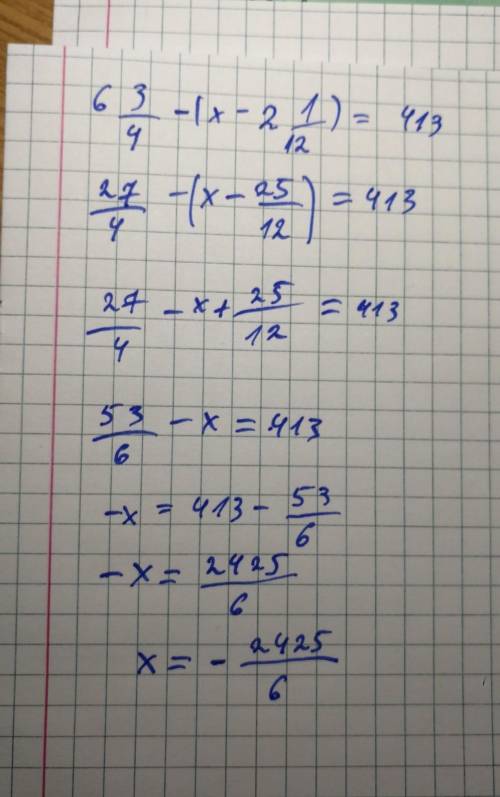 6 3/4 - (x - 2 1/12) = 413
27/4 - (x - 25/12) = 413
27/4 - x + 25/12 = 413
53/6 - x = 413
-x = 413 - 53/6
-x = 2425/6
x = - 2425/6